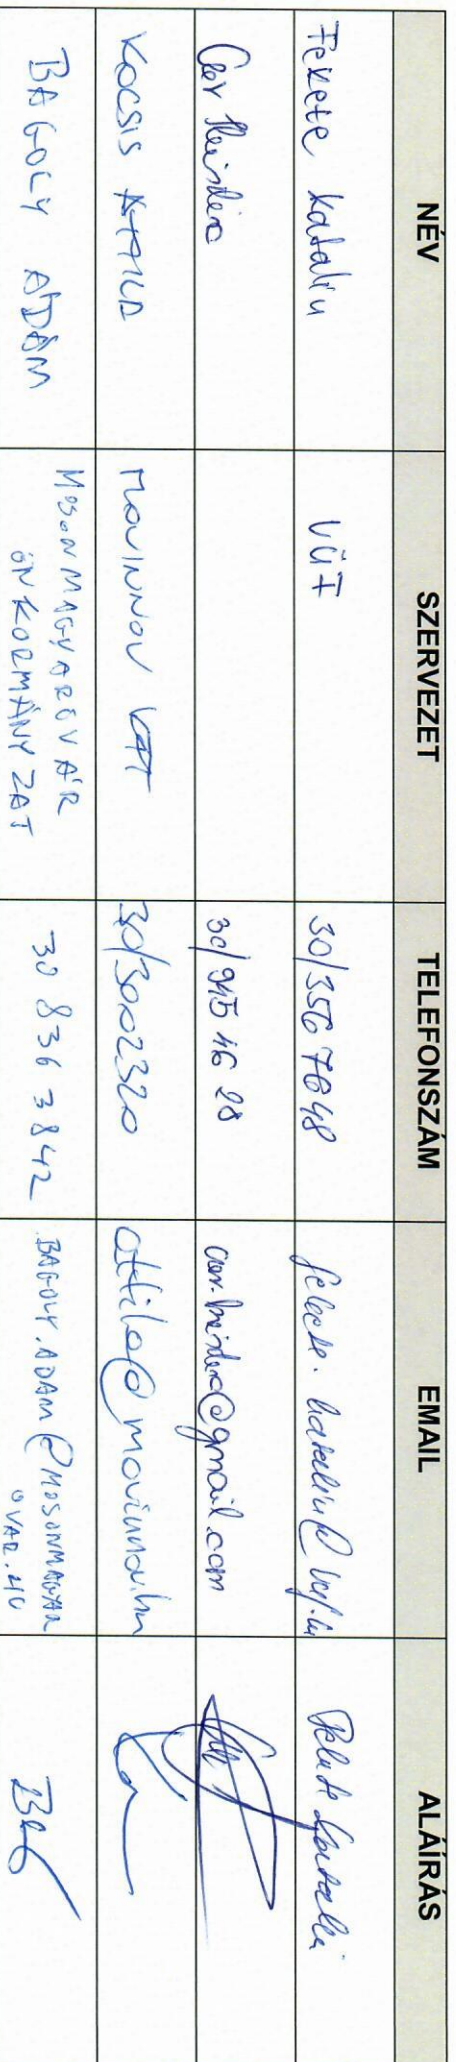 NÉV SZERVEZET TELEFONSZÁM EMAIL ALÁÍRÁS
Fekete Katalin VÜF 30/356 7648 fekete.katalin@vuf.hu Fekete Katalin
30/945 46 28 @gmail.com
Kocsis Attila MOVINNOV KFT 30/3002320 attila@movinnov.hu
BAGOLY ÁDÁM MOSONMAGYARÓVÁR
ÖNKORMÁNYZAT
30 836 3842 BAGOLY.ADAM@MOSONMAGYAR
OVAR.HU